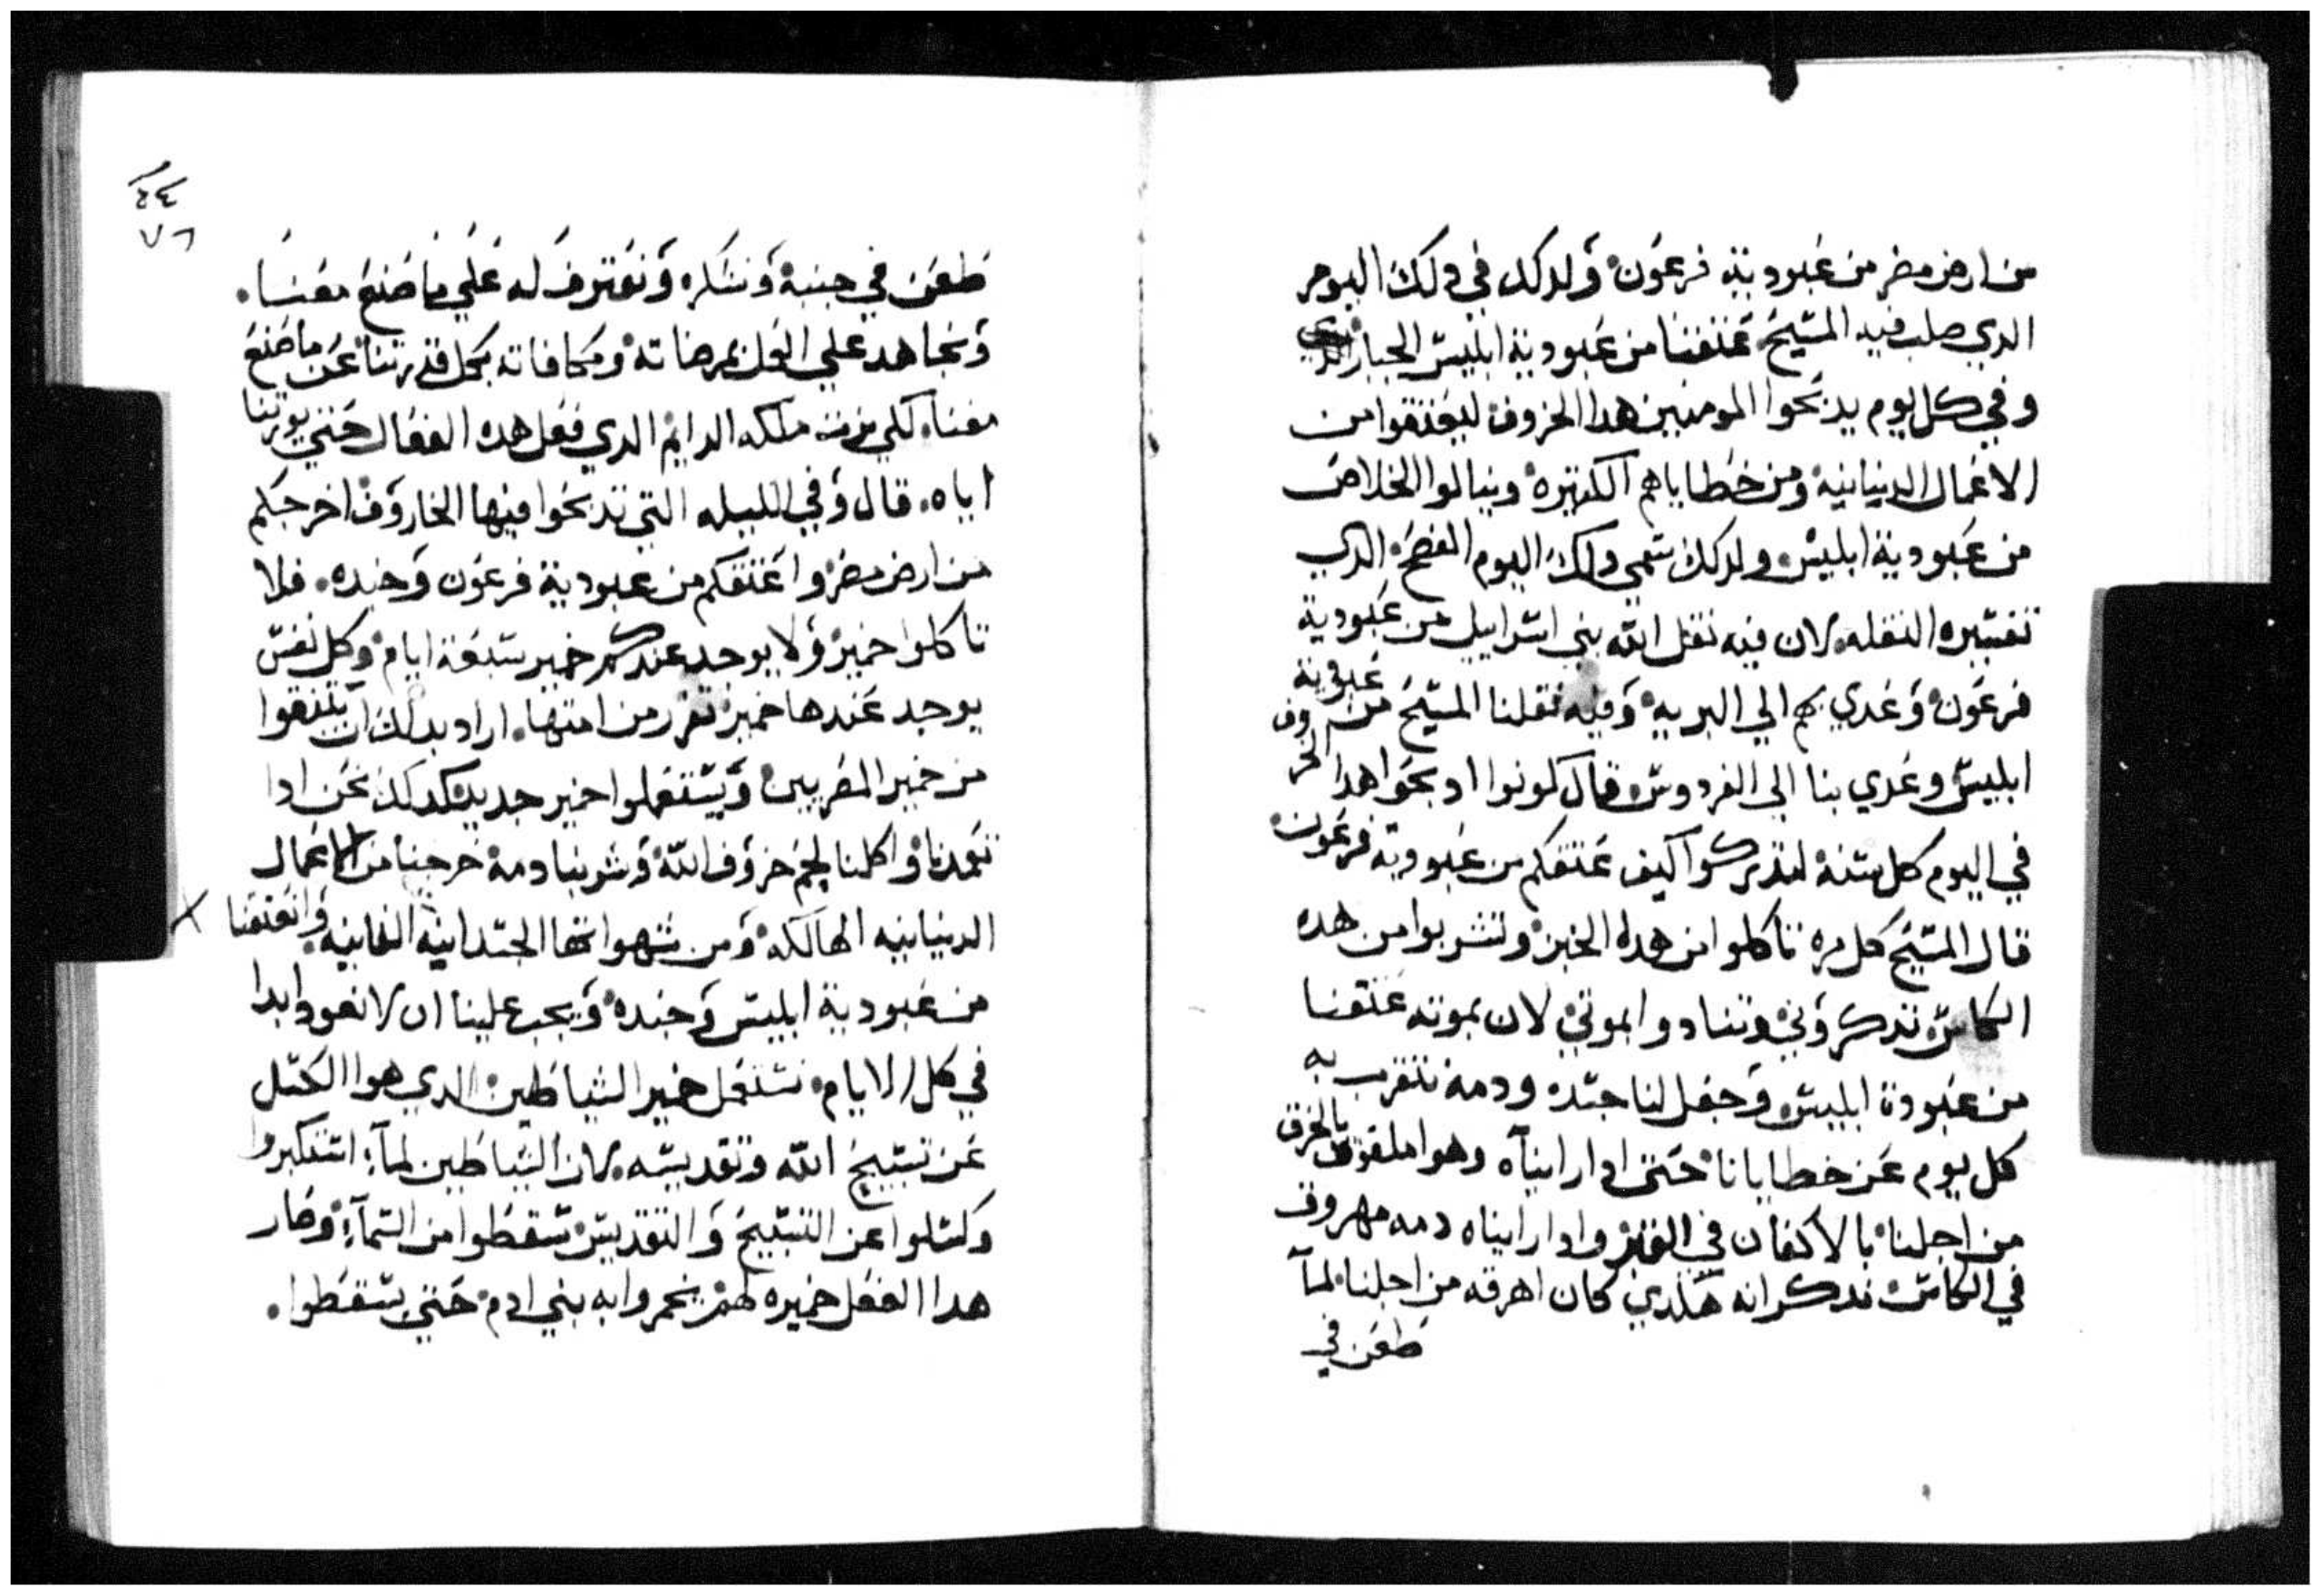 من ارض مصر من عبودية فرعون ولدلك في دلك اليوم
الدي صلب فيه المسيح عتقنا من عبودية ابليس الجبار
وفي كل يوم يدبحوا المومنين هدا الخروف ليعتقوا من
الاعمال الدنيانيه ومن خطاياهم الكتيره وينالوا الخلاص
من عبودية ابليس ولدلك سمي دلك اليوم الفصح الدي
تفسيره النقله لان فيه نقل الله بني اسراييل من عبودية
فرعون وعدي بهم الي البريه وفيه نقلنا المسيح من عبودية
ابليس وعدي بنا الي الفردوس قال كونوا ادبحوا هدا الخروف
في اليوم كل سنة لتدكروا كيف عتقكم من عبودية فرعون
قال المسيح كل مره تاكلوا من هدا الخبز وتشربوا من هده
الكاس تدكروني وتنادوا بموتي لان بموته عتقنا
من عبودة ابليس وجعل لنا جسده ودمه نتقرب به
كل يوم عن خطايانا حتي ادا رايناه وهوا ملفوف بالخرق
من اجلنا بالاكفان في القبر وادا رايناه دمه مهروق
في الكاس ندكر انه هكدي كان اهرقه من اجلنا لما
طعن في
٧٦
طعن في جنبه ونشكره ونعترف له علي ما صنع معنا.
ونجاهد علي العمل بمرضاته ومكافاته بكل قدرتنا عن ما صنع
معنا. لكي نرت ملكه الدايم الدي فعل هده الفعال حتي يورتنا
اياه. قال وفي الليله التي تدبحوا فيها الخاروف اخرجكم
من ارض مصر واعتقكم من عبودية فرعون وجنده. فلا
تاكلوا خمير ولا يوجد عندكم خمير سبعة ايام وكل نفس
يوجد عندها خمير تفرز من امتها. اراد بدلك ان يتنقوا
من خمير المصريين ويستعملوا خمير جديد كدلك نحن ادا
تعمدنا واكلنا لحم خروف الله وشربنا دمه خرجنا من الاعمال
الدنيانيه الهالكه ومن شهواتها الجسدانيه الفانيه. وانعتقنا
من عبودية ابليس وجنده ويجب علينا ان لا نعود ابدا
في كل الايام نستعمل خمير الشياطين الدي هوا الكسل
عن تسبيح الله وتقديسه لان الشياطين لما استكبروا
وكسلوا عن التسبيح والتقديس سقطوا من السماء وصار
هدا الفعل خميره لهم يخمروا به بني ادم حتي يسقطوا.